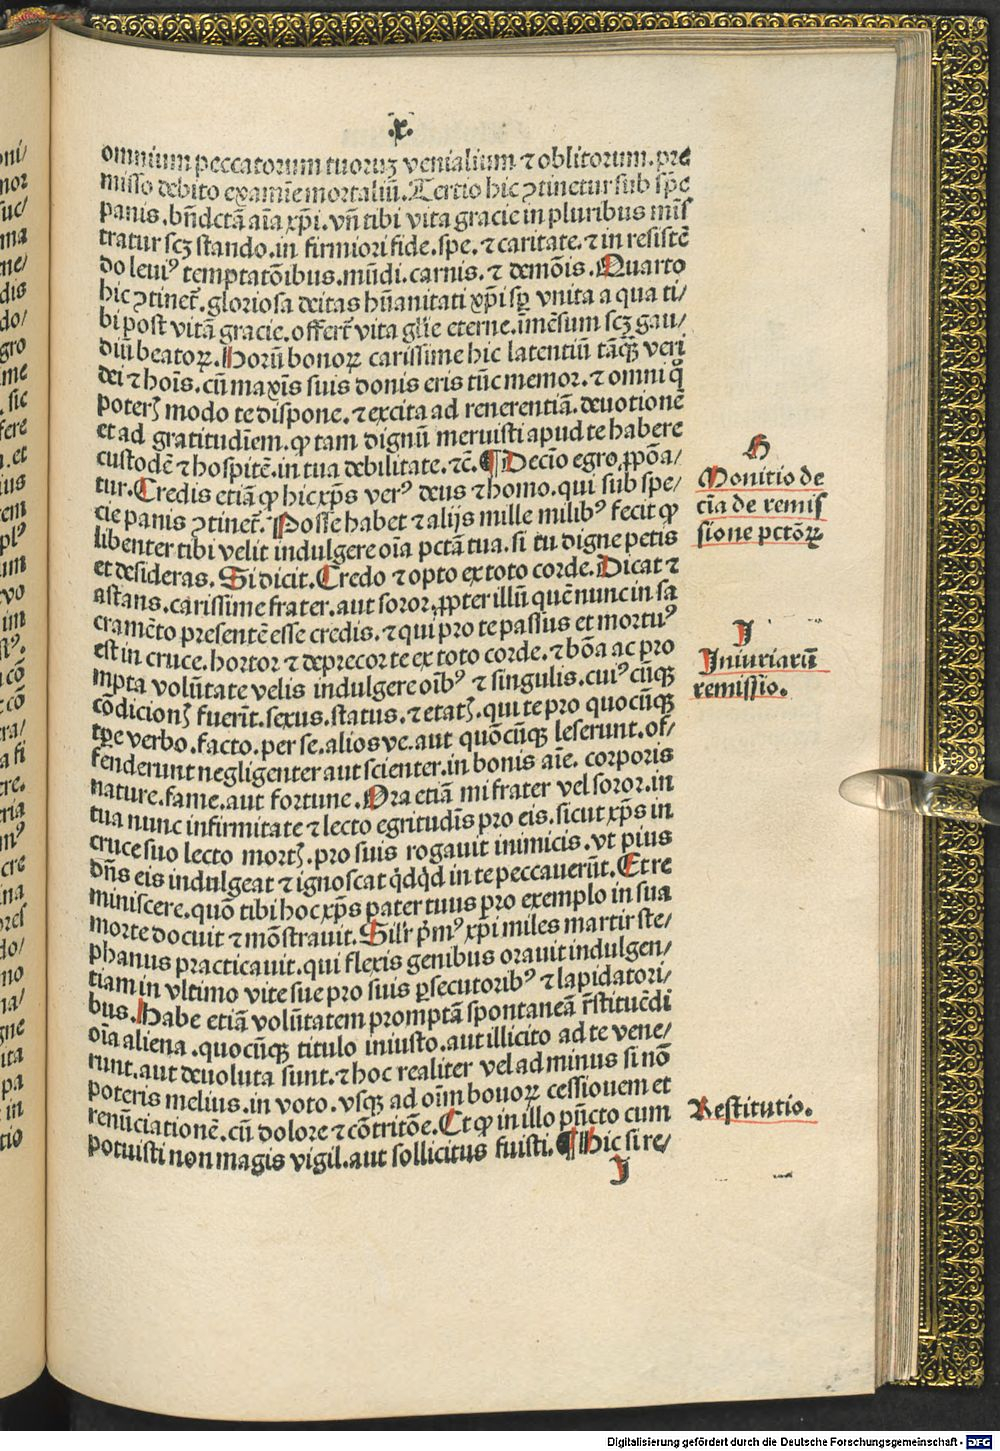 .x.
omnium peccatorum tuoruꝫ venialium ⁊ oblitorum. pre
misso debito examīe mortaliū. Tertio hic ꝯtinetur sub spē
panis. bn̄dctā aīa xp̄i. vn̄ tibi vita gracie in pluribus mīs
tratur scꝫ stando. in firmiori fide. spe. ⁊ caritate. ⁊ in resistē
do leuiꝰ temptatōibus. mūdi. carnis. ⁊ demōis. Quarto
hic ꝯtinet̄. gloriosa deitas hūanitati xp̄i sꝑ vnita a qua ti/
bi post vitā gracie. offert̄ vita glīe eterne. īmēsum scꝫ gau/
diū beatoꝝ. Horū bonoꝝ carissime hic latentiū tāꝙ̄ veri
dei ⁊ hoīs. cū maxīs suis donis eris tūc memor. ⁊ omni q̊
poterꝭ modo te dispone. ⁊ excita ad renerentiā. deuotionē
et ad gratitudīem. ꝙ tam dignū meruisti apud te habere
custodē ⁊ hospitē. in tua debilitate. ⁊c̄. ¶ Decīo egro ꝓpōa/
tur. Credis etiā ꝙ hic xp̄s verꝰ deus ⁊ homo. qui sub spe/
cie panis ꝯtinet̄. Posse habet ⁊ alijs mille milibꝰ fecit ꝙ
libenter tibi velit indulgere oīa pctā tua. si tu digne petis
et desideras. Si dicit. Credo ⁊ opto ex toto corde. Dicat ⁊
astans. carissime frater. aut soror, ꝓpter illū quē nunc in sa
cramēto presentē esse credis. ⁊ qui pro te passus et mortuꝰ
est in cruce. hortor ⁊ deprecor te ex toto corde. ⁊ bōa ac pro
mpta volūtate velis indulgere oībꝰ ⁊ singulis. cuiꝰcūqꝫ
cōdicionꝭ fuerīt. sexus. status. ⁊ etatꝭ. qui te pro quocūqꝫ
tꝑe verbo. facto. per se. alios ve. aut quōcūqꝫ leserunt. of/
fenderunt negligenter aut scienter. in bonis aīe. corporis
nature. fame. aut fortune. Ora etiā mi frater vel soror. in
tua nunc infirmitate ⁊ lecto egritudīs pro eis. sicut xp̄s in
cruce suo lecto mortꝭ. pro suis rogauit inimicis. vt pius
dn̄s eis indulgeat ⁊ ignoscat q̇dq̇d in te peccauerūt. Et re
miniscere. quō tibi hoc xp̄s pater tuus pro exemplo in sua
morte docuit ⁊ mōstrauit. Silr̄ p̄mꝰ xp̄i miles martir ste/
phanus practicauit. qui flexis genibus orauit indulgen/
tiam in vltimo vite sue pro suis ꝑsecutoribꝰ ⁊ lapidatori/
bus. Habe etiā volūtatem promptā spontaneā r̄stituēdi
oīa aliena. quocūqꝫ titulo iniusto. aut illicito ad te vene/
runt. aut deuoluta sunt. ⁊ hoc realiter vel ad minus si nō
poteris melius. in voto. vsqꝫ ad oīm bouoꝝ cessiouem et
renūciationē. cū dolore ⁊ cōtritōe. Et ꝙ in illo pūcto cum
potuisti non magis vigil. aut sollicitus fuisti. ¶ Hic si re/
J
H
Monitio de
cīa de remis
sione pctōꝝ.
J
Jniuriarū
remissio.
Restitutio.
Digitalisierung gefördert durch die Deutsche Forschungsgemeinschaft - DFG